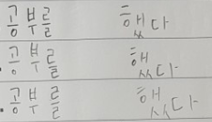 공부를 했다
공부를 했다
공부를 했다